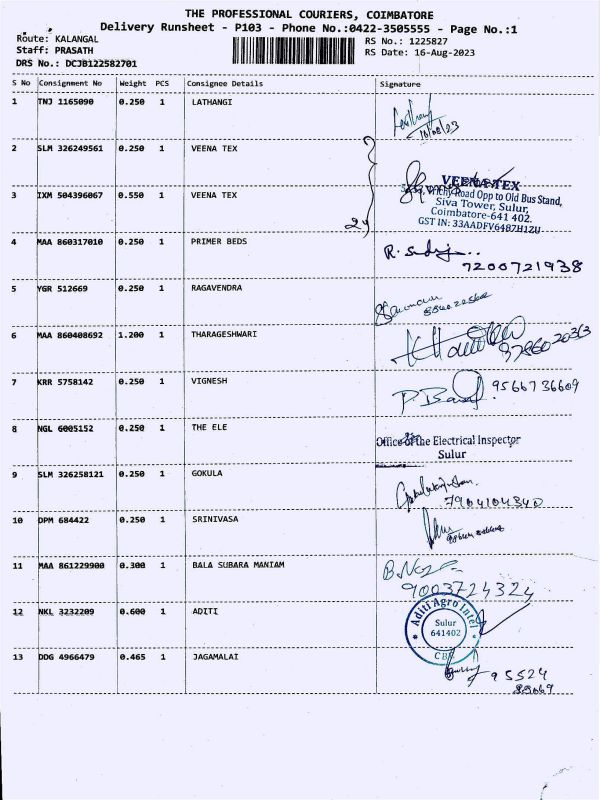 THE PROFESSIONAL COURIERS, COIMBATORE
Delivery Runsheet - P103 - Phone No.:0422-3505555 - Page No.:1
Route: KALANGAL
RS No.: 1225827
Staff: PRASATH
RS Date: 16-Aug-2023
DRS No.: DCJB122582701
S No Consignment No Weight PCS Consignee Details Signature
1 TNJ 1165090 0.250 1 LATHANGI
16/08/23
2 SLM 326249561 0.250 1 VEENA TEX
3 IXM 504396067 0.550 1 VEENA TEX
VEENA TEX
Trichy Road Opp to Old Bus Stand,
Siva Tower, Sulur,
Coimbatore-641 402.
GST IN: 33AADFV6487H1ZU
4 MAA 860317010 0.250 1 PRIMER BEDS
7200721938
5 YGR 512669 0.250 1 RAGAVENDRA
6 MAA 860408692 1.200 1 THARAGESHWARI
7 KRR 5758142 0.250 1 VIGNESH
9566736609
8 NGL 6005152 0.250 1 THE ELE
Office of the Electrical Inspector
Sulur
9 SLM 326258121 0.250 1 GOKULA
7904104340
10 DPM 684422 0.250 1 SRINIVASA
11 MAA 861229900 0.300 1 BALA SUBARA MANIAM
9003724324
12 NKL 3232209 0.600 1 ADITI
Aditi Agro Intel
Sulur
641402
13 DDG 4966479 0.465 1 JAGAMALAI
95524